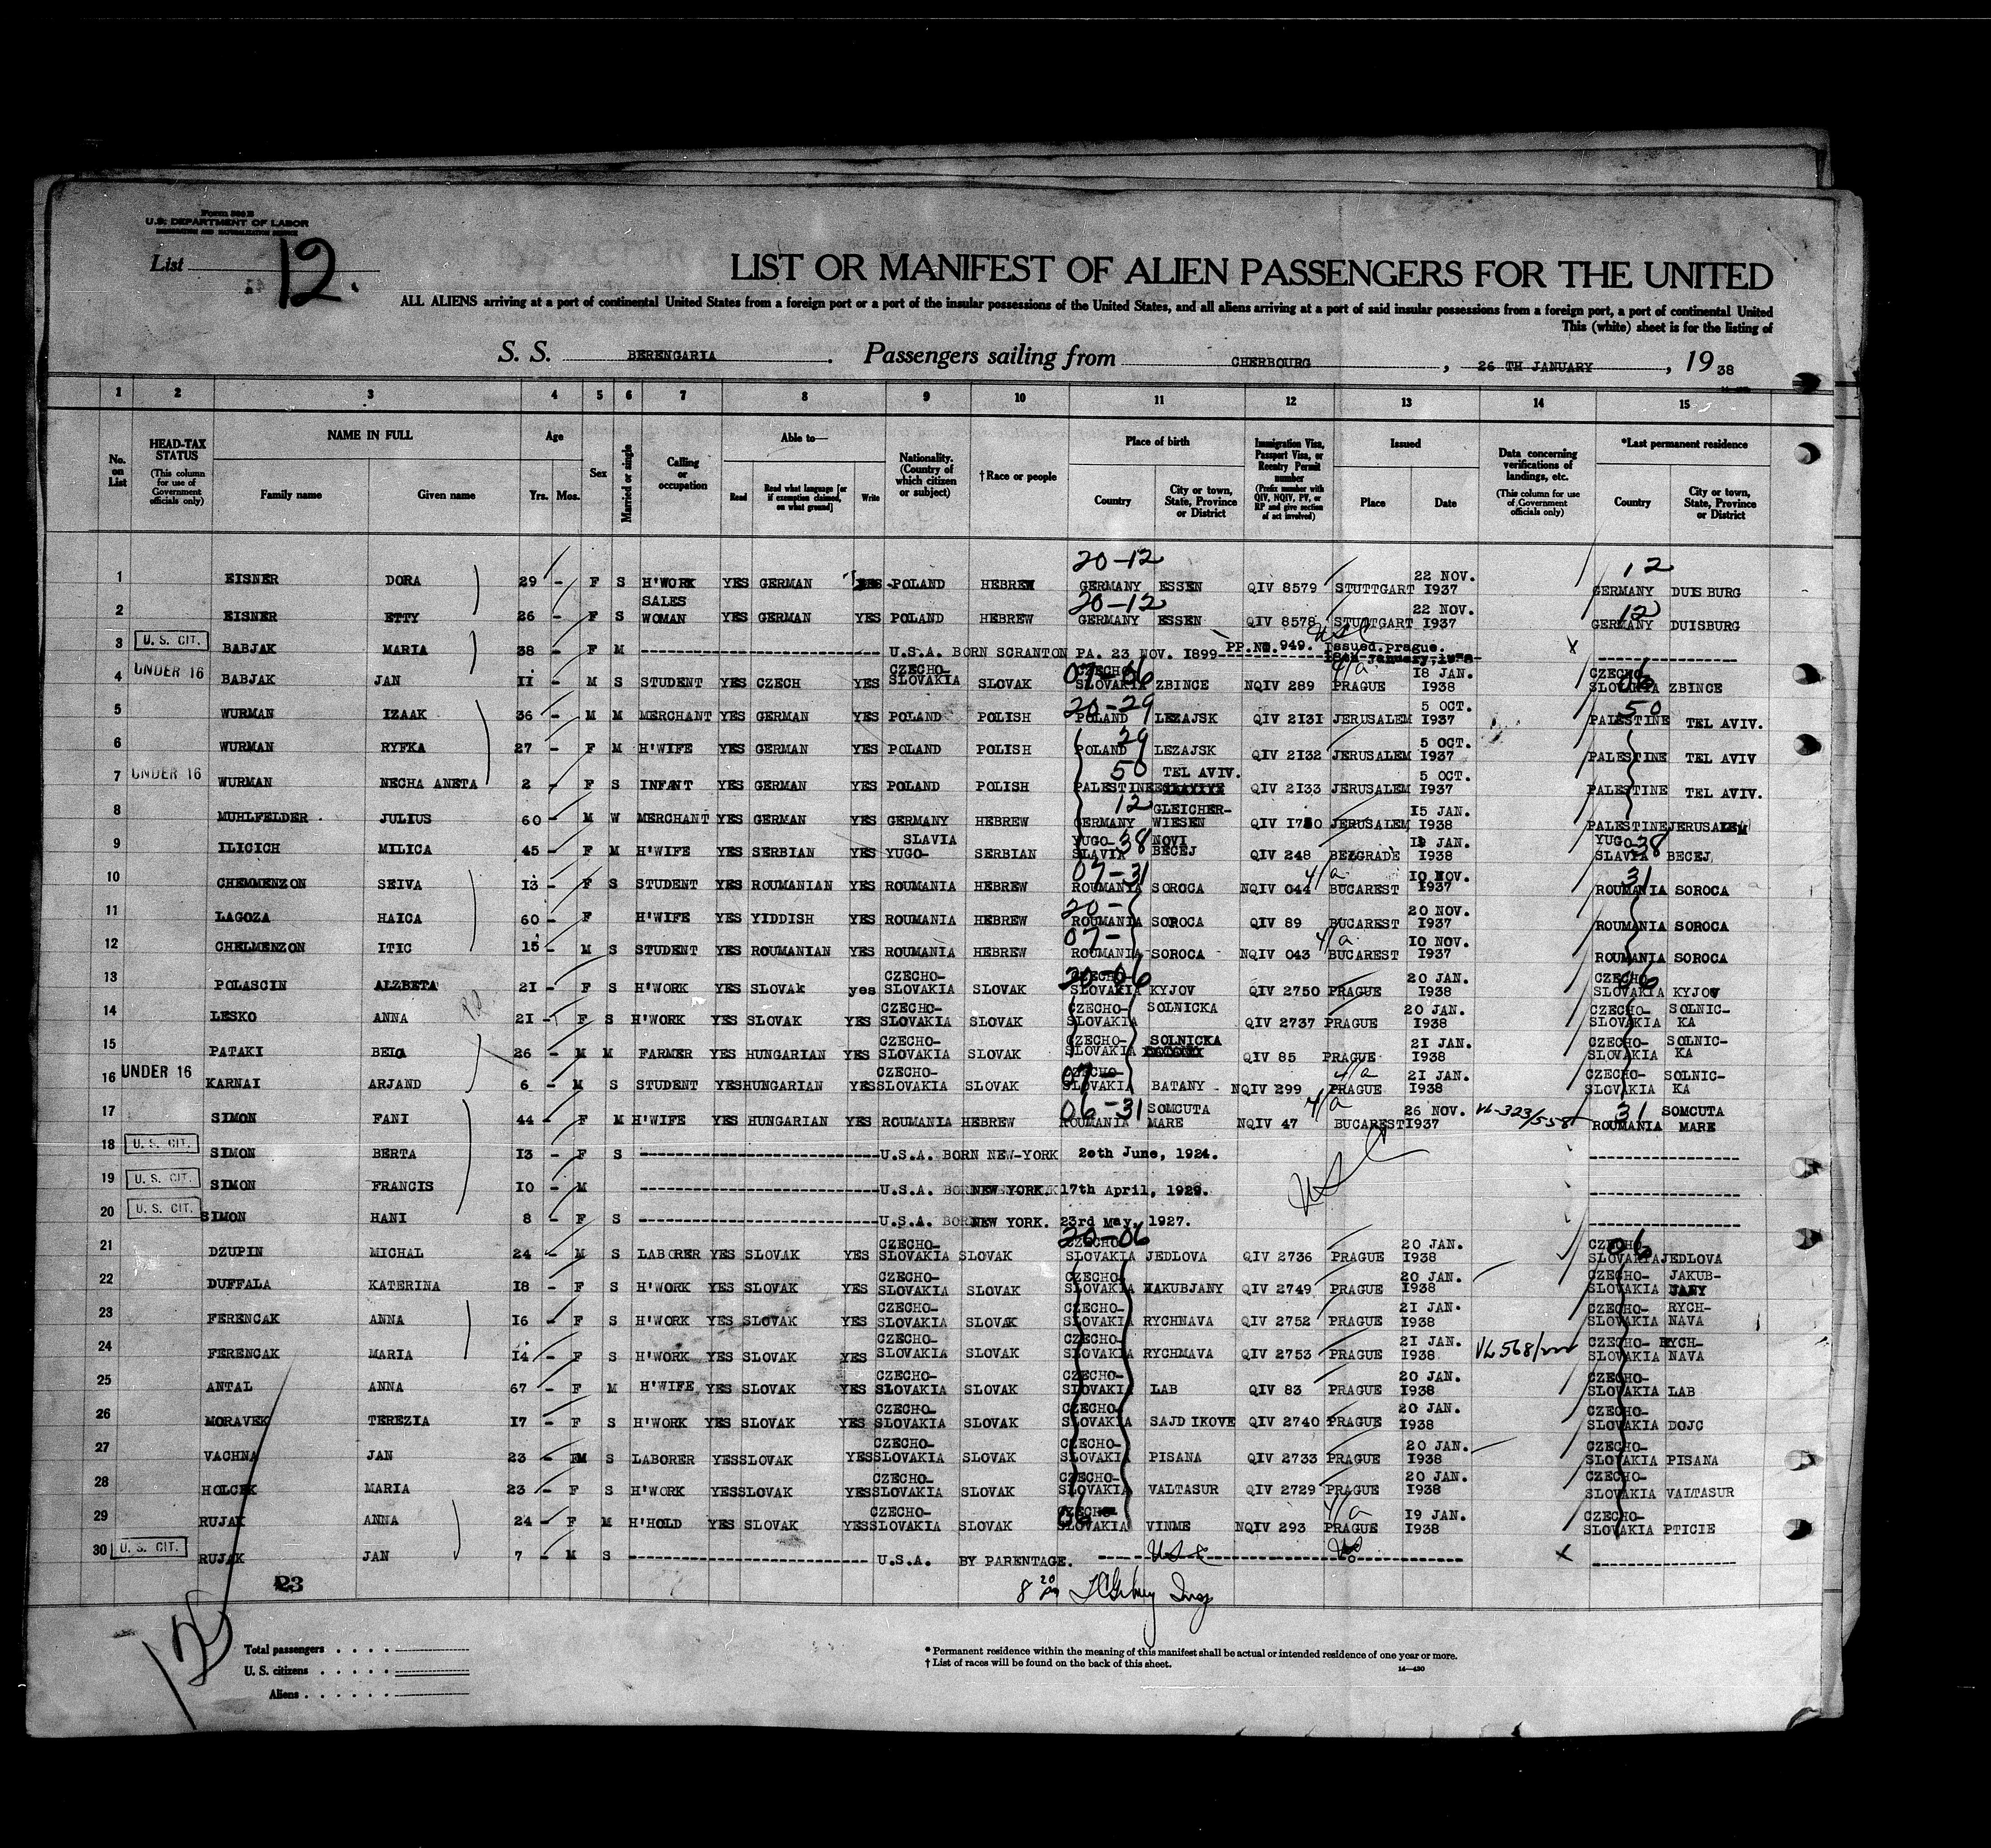 Form 500 B
U.S. DEPARTMENT OF LABOR
IMMIGRATION AND NATURALIZATION SERVICE
List 12.
LIST OR MANIFEST OF ALIEN PASSENGERS FOR THE UNITED
ALL ALIENS arriving at a port of continental United States from a foreign port or a port of the insular possessions of the United States, and all aliens arriving at a port of said insular possessions from a foreign port, a port of continental United
This (white) sheet is for the listing of
S. S. BERENGARIA. Passengers sailing from CHERBOURG, 26 TH JANUARY, 19 38
1 2 3 4 5 6 7 8 9 10 11 12 13 14 15
No. on List
HEAD-TAX STATUS (This column for use of Government officials only)
NAME IN FULL Family name Given name
Age Yrs. Mos.
Sex
Married or single
Calling or occupation
Able to— Read Read what language [or if exemption claimed, on what ground] Write
Nationality. (Country of which citizen or subject)
†Race or people
Place of birth Country City or town, State, Province or District
Immigration Visa, Passport Visa, or Reentry Permit number (Prefix number with QIV, NQIV, PV, or RP and give section of act involved)
Issued Place Date
Data concerning verifications of landings, etc. (This column for use of Government officials only)
*Last permanent residence Country City or town, State, Province or District
1 EISNER DORA 29 - F S H'WORK YES GERMAN YES POLAND HEBREW 20-12 GERMANY ESSEN QIV 8579 STUTTGART 22 NOV. 1937 12 GERMANY DUISBURG
2 EISNER ETTY 26 - F S SALES WOMAN YES GERMAN YES POLAND HEBREW 20-12 GERMANY ESSEN QIV 8578 STUTTGART 22 NOV. 1937 12 GERMANY DUISBURG
3 U. S. CIT. BABJAK MARIA 38 - F M U.S.A. BORN SCRANTON PA. 23 NOV. 1899 PP.NO.949. Issued.prague. USC 18th January,1938 X
4 UNDER 16 BABJAK JAN 11 - M S STUDENT YES CZECH YES CZECHO-SLOVAKIA SLOVAK 07-06 CZECHO-SLOVAKIA ZBINCE NQIV 289 4/a PRAGUE 18 JAN. 1938 06 CZECHO-SLOVAKIA ZBINCE
5 WURMAN IZAAK 36 - M M MERCHANT YES GERMAN YES POLAND POLISH 20-29 POLAND LEZAJSK QIV 2131 JERUSALEM 5 OCT. 1937 50 PALESTINE TEL AVIV.
6 WURMAN RYFKA 27 - F M H'WIFE YES GERMAN YES POLAND POLISH 29 POLAND LEZAJSK QIV 2132 JERUSALEM 5 OCT. 1937 PALESTINE TEL AVIV
7 UNDER 16 WURMAN NECHA ANETA 2 - F S INFANT YES GERMAN YES POLAND POLISH 50 PALESTINE TEL AVIV. QIV 2133 JERUSALEM 5 OCT. 1937 PALESTINE TEL AVIV.
8 MUHLFELDER JULIUS 60 - M W MERCHANT YES GERMAN YES GERMANY HEBREW 12 GERMANY GLEICHER-WIESEN QIV JERUSALEM 15 JAN. 1938 PALESTINE JERUSALEM
9 ILICICH MILICA 45 - F M H'WIFE YES SERBIAN YES YUGO-SLAVIA SERBIAN 38 YUGO-SLAVIA NOVI BECEJ QIV 248 BELGRADE JAN. 1938 38 YUGO-SLAVIA BECEJ
10 CHEMMENZON SEIVA 13 - F S STUDENT YES ROUMANIAN YES ROUMANIA HEBREW 07-31 ROUMANIA SOROCA NQIV 044 4/a BUCAREST 10 NOV. 1937 31 ROUMANIA SOROCA
11 LAGOZA HAICA 60 - F H'WIFE YES YIDDISH YES ROUMANIA HEBREW 20- ROUMANIA SOROCA QIV 89 BUCAREST 20 NOV. 1937 ROUMANIA SOROCA
12 CHELMENZON ITIC 15 - M S STUDENT YES ROUMANIAN YES ROUMANIA HEBREW 07- ROUMANIA SOROCA NQIV 043 4/a BUCAREST 10 NOV. 1937 ROUMANIA SOROCA
13 POLASCIN ALZBETA 21 - F S H'WORK YES SLOVAk yes CZECHO-SLOVAKIA SLOVAK 20-06 CZECHO-SLOVAKIA KYJOV QIV 2750 PRAGUE 20 JAN. 1938 06 CZECHO-SLOVAKIA KYJOV
14 LESKO ANNA 21 - F S H'WORK YES SLOVAK YES CZECHO-SLOVAKIA SLOVAK CZECHO-SLOVAKIA SOLNICKA QIV 2737 PRAGUE 20 JAN. 1938 CZECHO-SLOVAKIA SOLNIC-KA
15 PATAKI BELA 26 - M M FARMER YES HUNGARIAN YES CZECHO-SLOVAKIA SLOVAK CZECHO-SLOVAKIA SOLNICKA QIV 85 PRAGUE 21 JAN. 1938 CZECHO-SLOVAKIA SOLNIC-KA
16 UNDER 16 KARNAI ARJAND 6 - M S STUDENT YES HUNGARIAN YES CZECHO-SLOVAKIA SLOVAK 07- CZECHO-SLOVAKIA BATANY NQIV 299 4/a PRAGUE 21 JAN. 1938 CZECHO-SLOVAKIA SOLNIC-KA
17 SIMON FANI 44 - F M H'WIFE YES HUNGARIAN YES ROUMANIA HEBREW 06-31 ROUMANIA SOMCUTA MARE NQIV 47 4/a BUCAREST 26 NOV. 1937 VL-323/558 31 ROUMANIA SOMCUTA MARE
18 U. S. CIT. SIMON BERTA 13 - F S U.S.A. BORN NEW-YORK 20th June, 1924.
19 U. S. CIT. SIMON FRANCIS 10 - M U.S.A. BORN NEW YORK. 17th April, 1929. USC
20 U. S. CIT. SIMON HANI 8 - F S U.S.A. BORN NEW YORK. 23rd May, 1927.
21 DZUPIN MICHAL 24 - M S LABORER YES SLOVAK YES CZECHO-SLOVAKIA SLOVAK 20-06 CZECHO-SLOVAKIA JEDLOVA QIV 2736 PRAGUE 20 JAN. 1938 06 CZECHO-SLOVAKIA JEDLOVA
22 DUFFALA KATERINA 18 - F S H'WORK YES SLOVAK YES CZECHO-SLOVAKIA SLOVAK CZECHO-SLOVAKIA HAKUBJANY QIV 2749 PRAGUE 20 JAN. 1938 CZECHO-SLOVAKIA JAKUB-JANY
23 FERENCAK ANNA 16 - F S H'WORK YES SLOVAK YES CZECHO-SLOVAKIA SLOVAK CZECHO-SLOVAKIA RYCHNAVA QIV 2752 PRAGUE 21 JAN. 1938 CZECHO-SLOVAKIA RYCH-NAVA
24 FERENCAK MARIA 14 - F S H'WORK YES SLOVAK YES CZECHO-SLOVAKIA SLOVAK CZECHO-SLOVAKIA RYCHMAVA QIV 2753 PRAGUE 21 JAN. 1938 VL 568/ CZECHO-SLOVAKIA RYCH-NAVA
25 ANTAL ANNA 67 - F M H'WIFE YES SLOVAK YES CZECHO-SLOVAKIA SLOVAK CZECHO-SLOVAKIA LAB QIV 83 PRAGUE 20 JAN. 1938 CZECHO-SLOVAKIA LAB
26 MORAVEK TEREZIA 17 - F S H'WORK YES SLOVAK YES CZECHO-SLOVAKIA SLOVAK CZECHO-SLOVAKIA SAJD IKOVE QIV 2740 PRAGUE 20 JAN. 1938 CZECHO-SLOVAKIA DOJC
27 VACHNA JAN 23 - M S LABORER YES SLOVAK YES CZECHO-SLOVAKIA SLOVAK CZECHO-SLOVAKIA PISANA QIV 2733 PRAGUE 20 JAN. 1938 CZECHO-SLOVAKIA PISANA
28 HOLCEK MARIA 23 - F S H'WORK YES SLOVAK YES CZECHO-SLOVAKIA SLOVAK CZECHO-SLOVAKIA VALTASUR QIV 2729 PRAGUE 20 JAN. 1938 CZECHO-SLOVAKIA VALTASUR
29 RUJAK ANNA 24 - F M H'HOLD YES SLOVAK YES CZECHO-SLOVAKIA SLOVAK 06 CZECHO-SLOVAKIA VINME NQIV 293 4/a PRAGUE 19 JAN. 1938 CZECHO-SLOVAKIA PTICIE
30 U. S. CIT. RUJAK JAN 7 - M S U.S.A. BY PARENTAGE. USC X
23
8 20
Total passengers
U. S. citizens
Aliens
* Permanent residence within the meaning of this manifest shall be actual or intended residence of one year or more.
† List of races will be found on the back of this sheet.
14—430